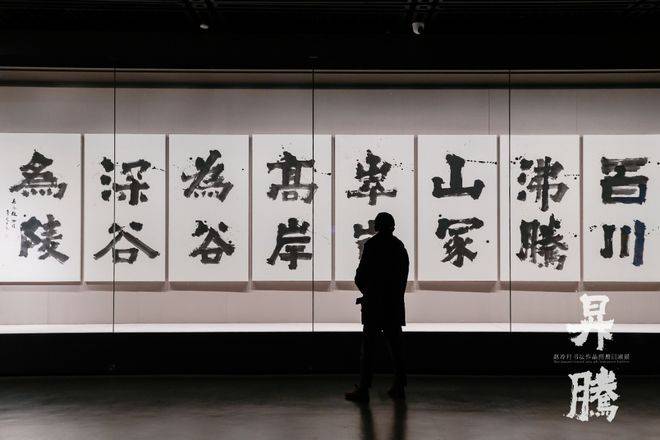 百川
沸騰
山冢
崒
高岸
為谷
深谷
為陵
昇騰